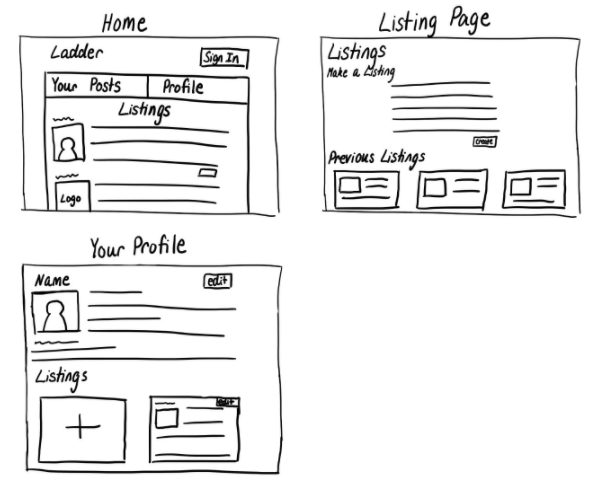 Home
Ladder
Sign In
Your Posts
Profile
Listings
Logo
Listing Page
Listings
Make a Listing
create
Previous Listings
Your Profile
Name
edit
Listings
edit